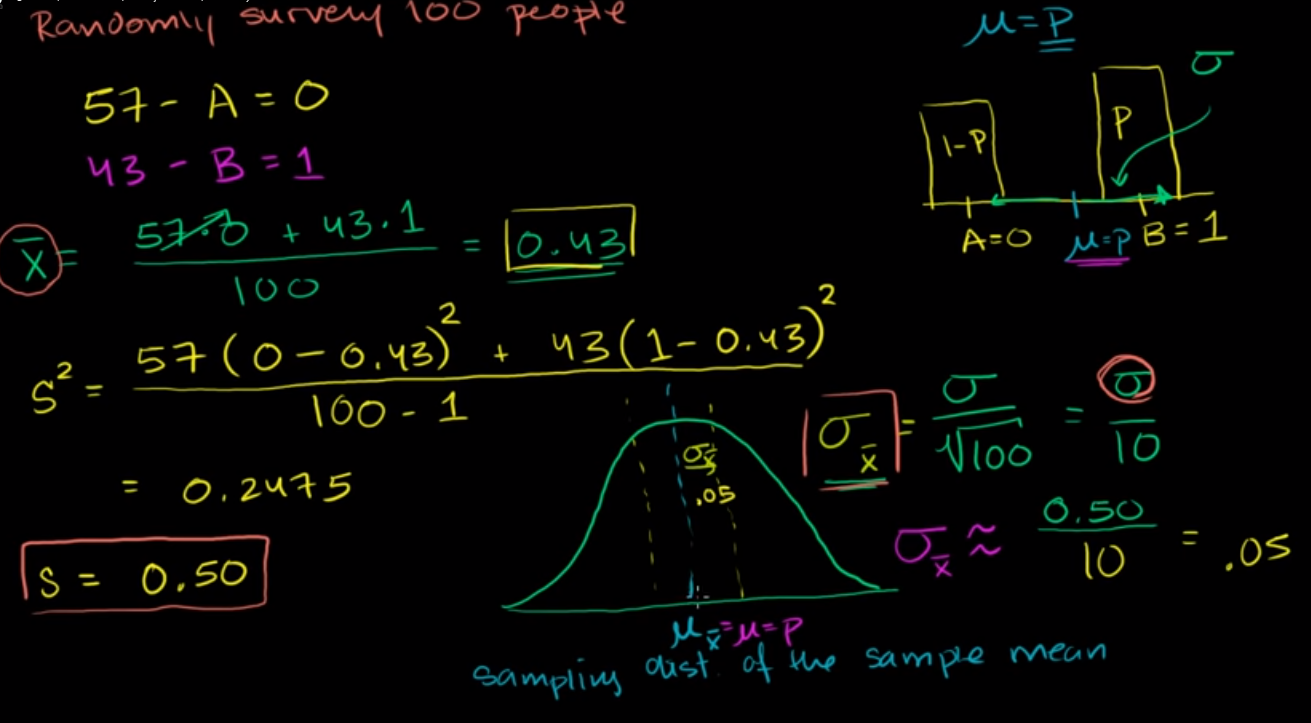 Randomly survey 100 people
57 - A = 0
43 - B = 1
x̄ = (57·0 + 43·1) / 100 = 0.43
S² = (57(0 - 0.43)² + 43(1 - 0.43)²) / (100 - 1)
= 0.2475
S = 0.50
μ = P
σ
1-P
P
A=0
μ=P
B=1
σx̄ = σ / √100 = σ / 10
σx̄ ≈ 0.50 / 10 = .05
σx̄
.05
μx̄ = μ = P
Sampling dist. of the sample mean